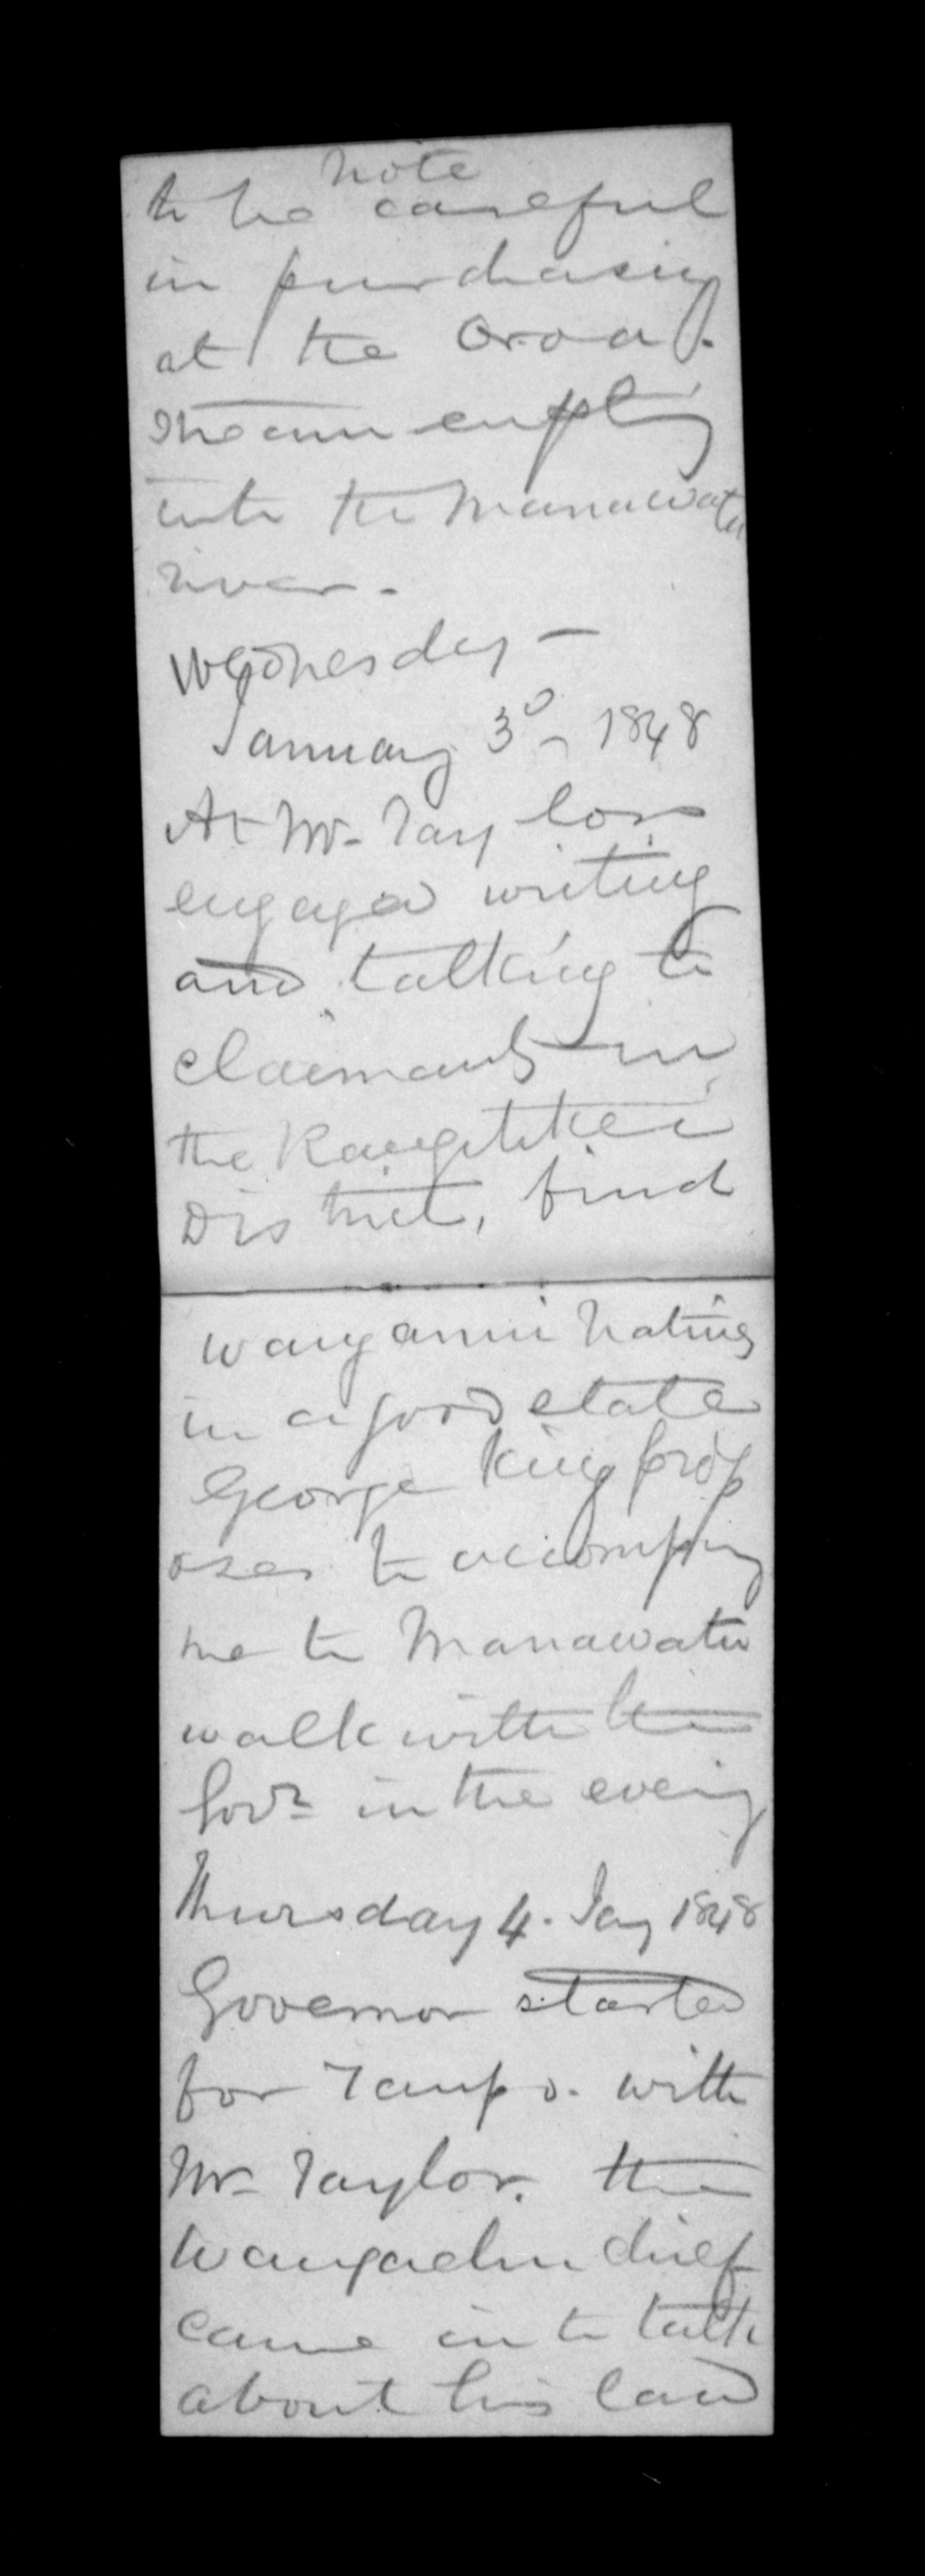 note
to be careful
in purchasing
at the Oroa.
stream empting
into the Manawatu
river -
Wednesday -
January 3d 1848
At Mr. Taylors
engaged writing
and talking to
claimants in
the Rangitikei
District, find
Wanganui Natives
in a good state
George King prop
oses to accompany
me to Manawatu
walk with the
Govr in the evening
Thursday 4. Jany 1848
Governor started
for Taupo. with
Mr Taylor. the
chief
came in to talk
about his land